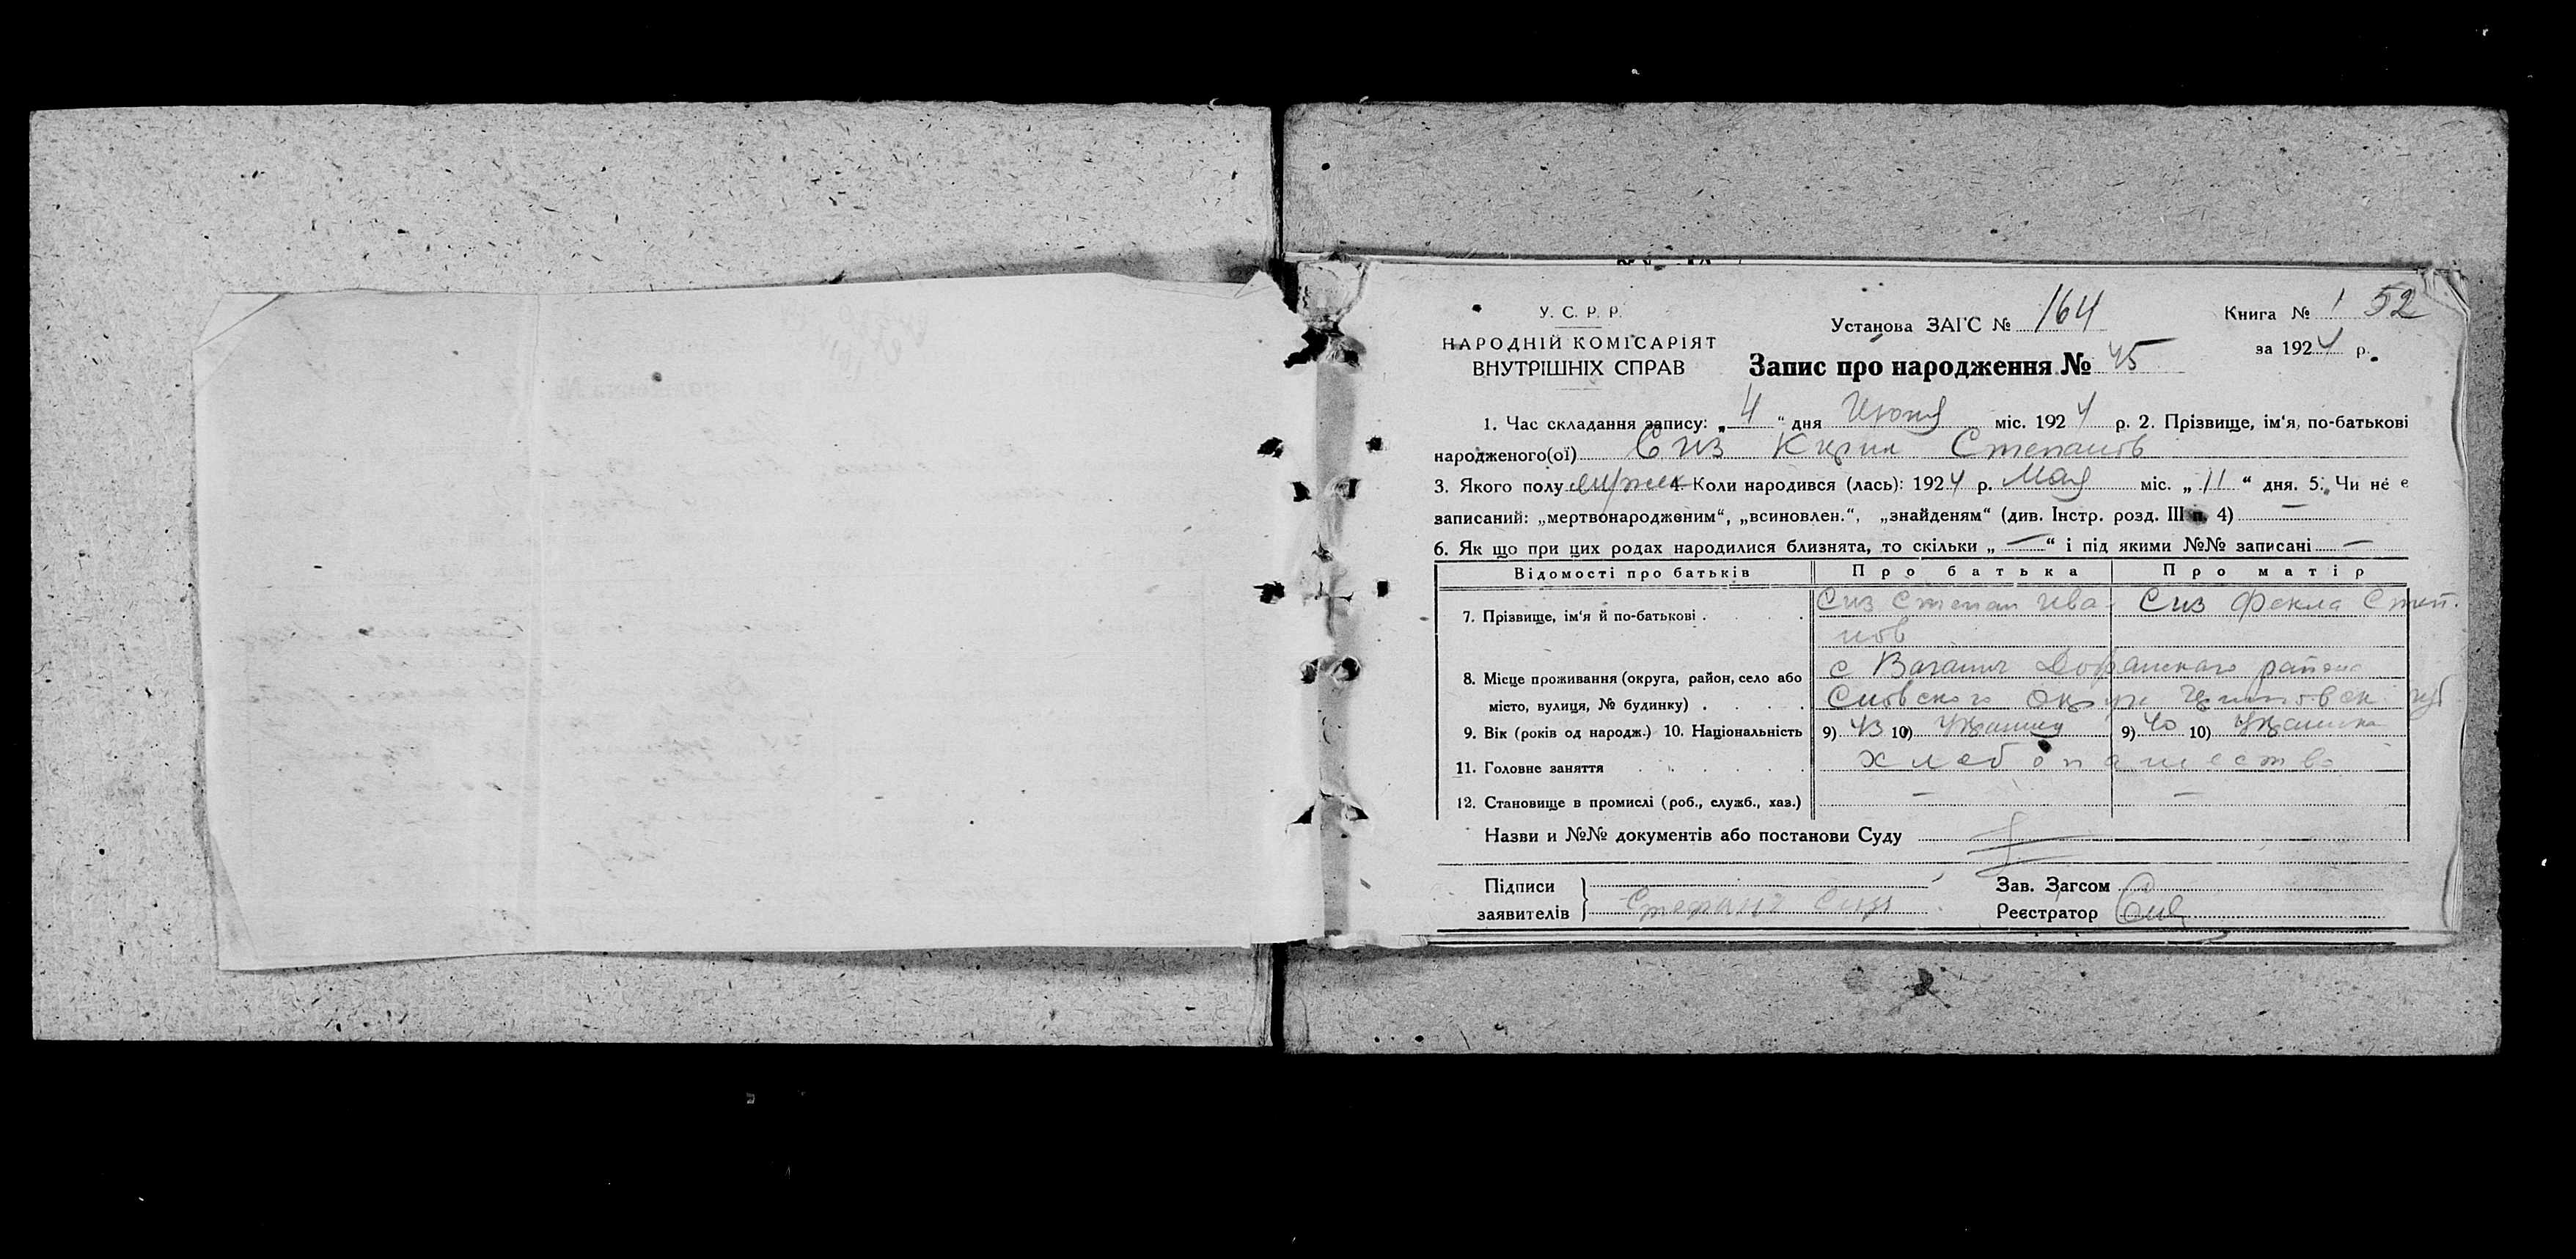 У. С. Р. Р.
НАРОДНІЙ КОМІСАРІЯТ
ВНУТРІШНІХ СПРАВ
Установа ЗАГС № 164
Книга № 1 52
за 1924 р.
Запис про народження № 45
1. Час складання запису: „ 4 “ дня Июня міс. 1924 р. 2. Прізвище, ім‘я, по-батькові
народженого(ої) Сиз Кирил Степанов
3. Якого полу мужск 4. Коли народився (лась): 1924 р. Мая міс. „ 11 “ дня. 5. Чи не є
записаний: „мертвонародженим“, „всиновлен.“, „знайденям“ (див. Інстр. розд. III п. 4) —
6. Як що при цих родах народилися близнята, то скільки „ — “ і під якими №№ записані —
Відомості про батьків Про батька Про матір
7. Прізвище, ім‘я й по-батькові . . . Сиз Степан Ива- Сиз Фекла Степ.
нов
8. Місце проживання (округа, район, село або с района
місто, вулиця, № будинку) . . . . Сновского
9. Вік (років од народж.) 10. Національність 9) 43 10) 9) 40 10)
11. Головне заняття . . . . . Хлебопашество
12. Становище в промислі (роб., служб., хаз.) — —
Назви и №№ документів або постанови Суду
Підписи
заявителів
Зав. Загсом
Реєстратор